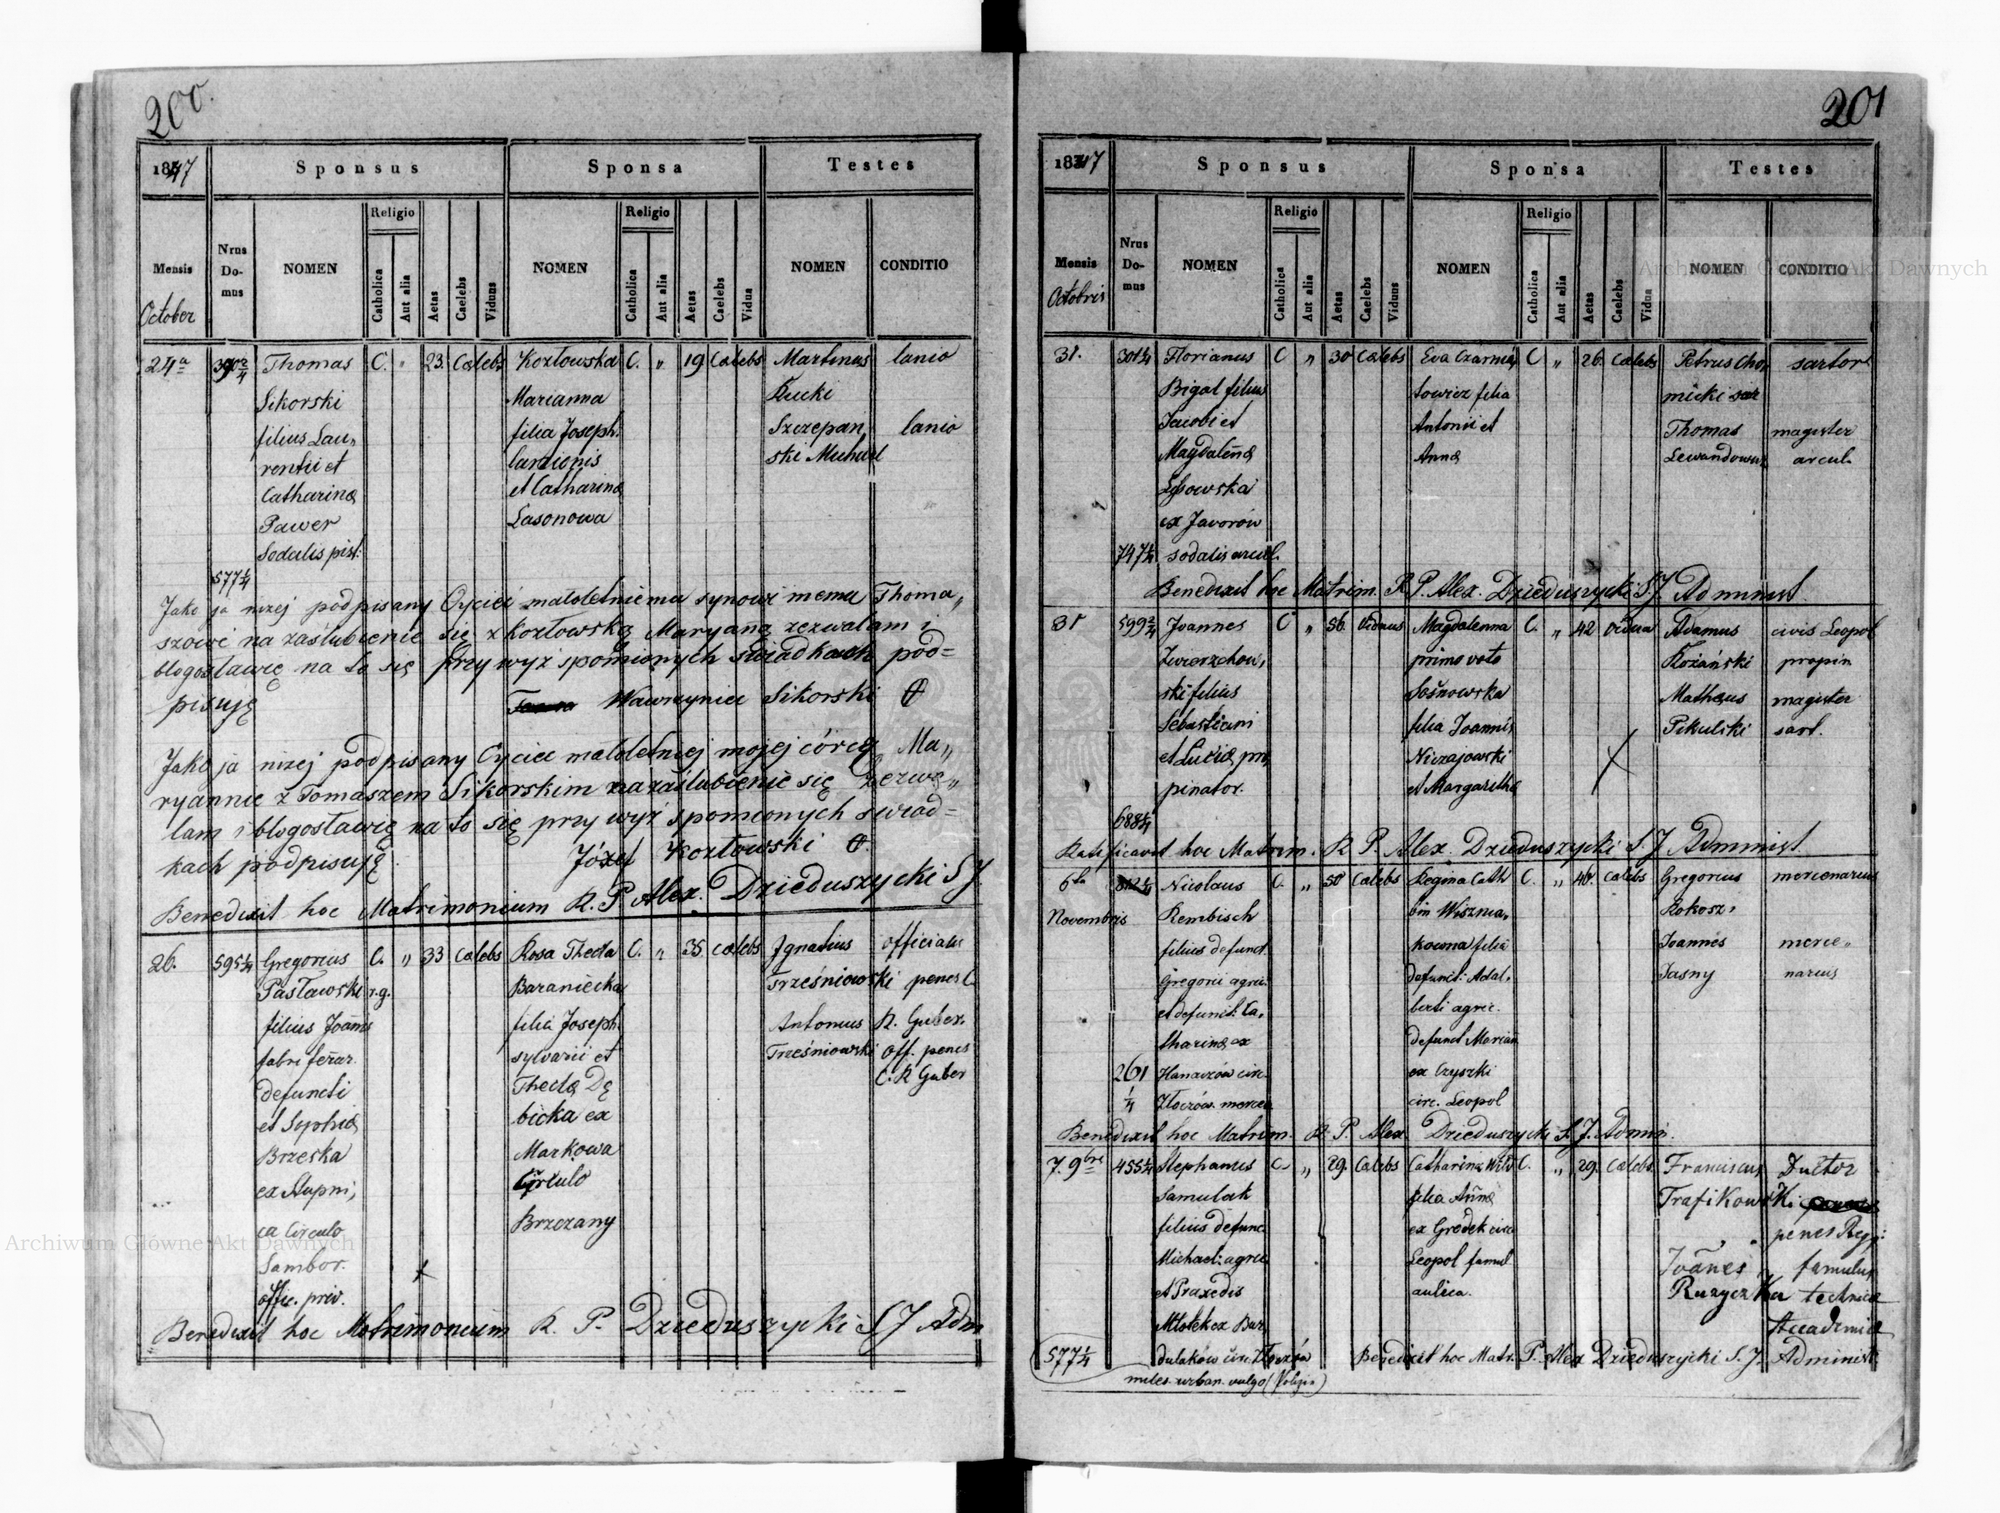 200.
1847 Sponsus Sponsa Testes
Mensis October Nrus Domus NOMEN Religio Catholica Aut alia Aetas Caelebs Viduus NOMEN Religio Catholica Aut alia Aetas Caelebs Vidua NOMEN CONDITIO
24a Thomas C. " 23. Caelebs Kozłowska C. " 19 Caelebs Martinus lanio
Sikorski Marianna Łucki
filius Lau, filia Joseph. Szczepan, lanio
rentii et lanionis ski Michael
Catharinæ et Catharinæ
Pawer Lasonowa
Sodalis pist.
577 1/4
Jako ja niżej podpisany Oyciec małoletniemu synowi memu Thoma„
szowi na zaślubienie się z Kozłowską Maryaną zezwalam i
błogosławię na to się przy wyż spomionych świadkach pod=
pisuję Wawrzyniec Sikorski
Jako ja niżej podpisany Oyciec małoletniej mojej córcę Ma„
ryannie z Tomaszem Sikorskim na zaślubienie się zezwa„
lam i błogosławię na to się przy wyż spomionych świad=
kach podpisuję. Józef Kozłowski
Benedixit hoc Matrimonium R. P. Alex. Dzieduszycki S J.
26. 595 1/4 Gregorius C. " 33 Caelebs Rosa Thecla C. " 35. caelebs Ignatius officialis
Pasławski r.g. Baraniecka Trześniowski penes C.
filius Joannis filia Joseph. Antonius R. Guber.
fabri ferar. sylvarii et Trześniowski off. penes
defuncti Theclæ Dę C. R Guber
et Sophiæ bicka ex
Brzeska Markowa
ex Stupni, Circulo
ca Circulo Brzezany
Sambor.
offic. priv.
Benedixit hoc Matrimonium R. P. Dzieduszycki S J Adm
201
1847 Sponsus Sponsa Testes
Mensis Octobris Nrus Domus NOMEN Religio Catholica Aut alia Aetas Caelebs Viduus NOMEN Religio Catholica Aut alia Aetas Caelebs Vidua NOMEN CONDITIO
31. 301 1/4 Florianus C " 30 Caelebs Eva Czarnie, C " 26. Caelebs Petrus Cho, sartor
Bigal filius towicz filia micki
Jacobi et Antonii et Thomas magister
Magdalenæ Annæ Lewandowski arcul.
ex Javorów
747 1/4 sodalis arcul.
Benedixit hoc Matrim. R P. Alex. Dzieduszycki S. J Administ.
31 599 2/4 Joannes C " 56. Viduus Magdalenna C. " 42 vidua Adamus civis Leopol
Zwierzchow, primo voto Kożański propin
ski filius Sośnowska Mathæus magister
Sebastiani filia Joannis Pikulski sart.
et Luciæ pro, Niczajowski
pinator. et Margarithæ
688 1/4
Ratificavit hoc Matrim. R P. Alex. Dzieduszycki S. J Administ
6ta Novembris Nicolaus C. " 50 Caelebs Regina Cath C. " 40. Caelebs Gregorius mercenarius
Rembisch Kokosz,
filius defunct. kowna filia Joannes merce„
Gregorii agric. defuncti Adal, Jasny narius
et defunct. Ca, berti agric.
tharinæ ex defunct Marian
261 1/4 Hanaczów circ. ex Czyszki
Złoczów. circ. Leopol
Benedixit hoc Matrim. R. P. Alex. Dzieduszycki S. J. Admin.
7. 9bre 455 1/4 Stephanus C. " 29. Caelebs Catharina C. " 29. Caelebs Franciscus Ductor
Samulak filia Annæ Trafikowski
filius defunc. ex Gródek circ. penes
Michaeli agric. Leopol famul Joānes famulus
et Praxedis aulica. Ruzyczka technicæ
Młotek ex Bur, Accademiæ
577 1/4 dulaków circ. Złoczów Benedixit hoc Matr. P. Alex Dzieduszycki S. J. Administ.
miles urban. vulgo (Polizia)
Archiwum Główne Akt Dawnych
Archiwum Główne Akt Dawnych